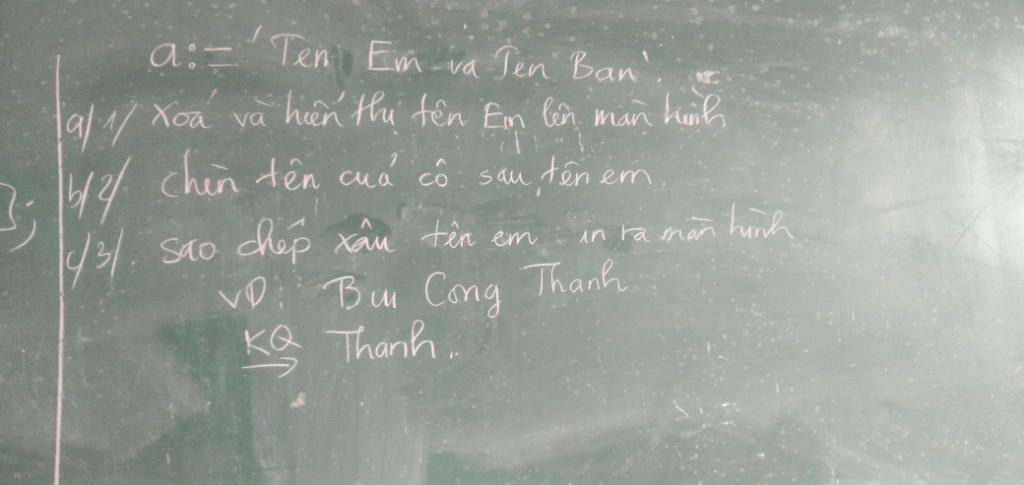 a:= 'Ten Em va Ten Ban'.
a/ 1/ Xoá và hiển thị tên Em lên màn hình
b/ 2/ chèn tên của cô sau tên em.
c/ 3/. sao chép xâu tên em in ra màn hình
VD: Bui Cong Thanh
KQ Thanh..
};